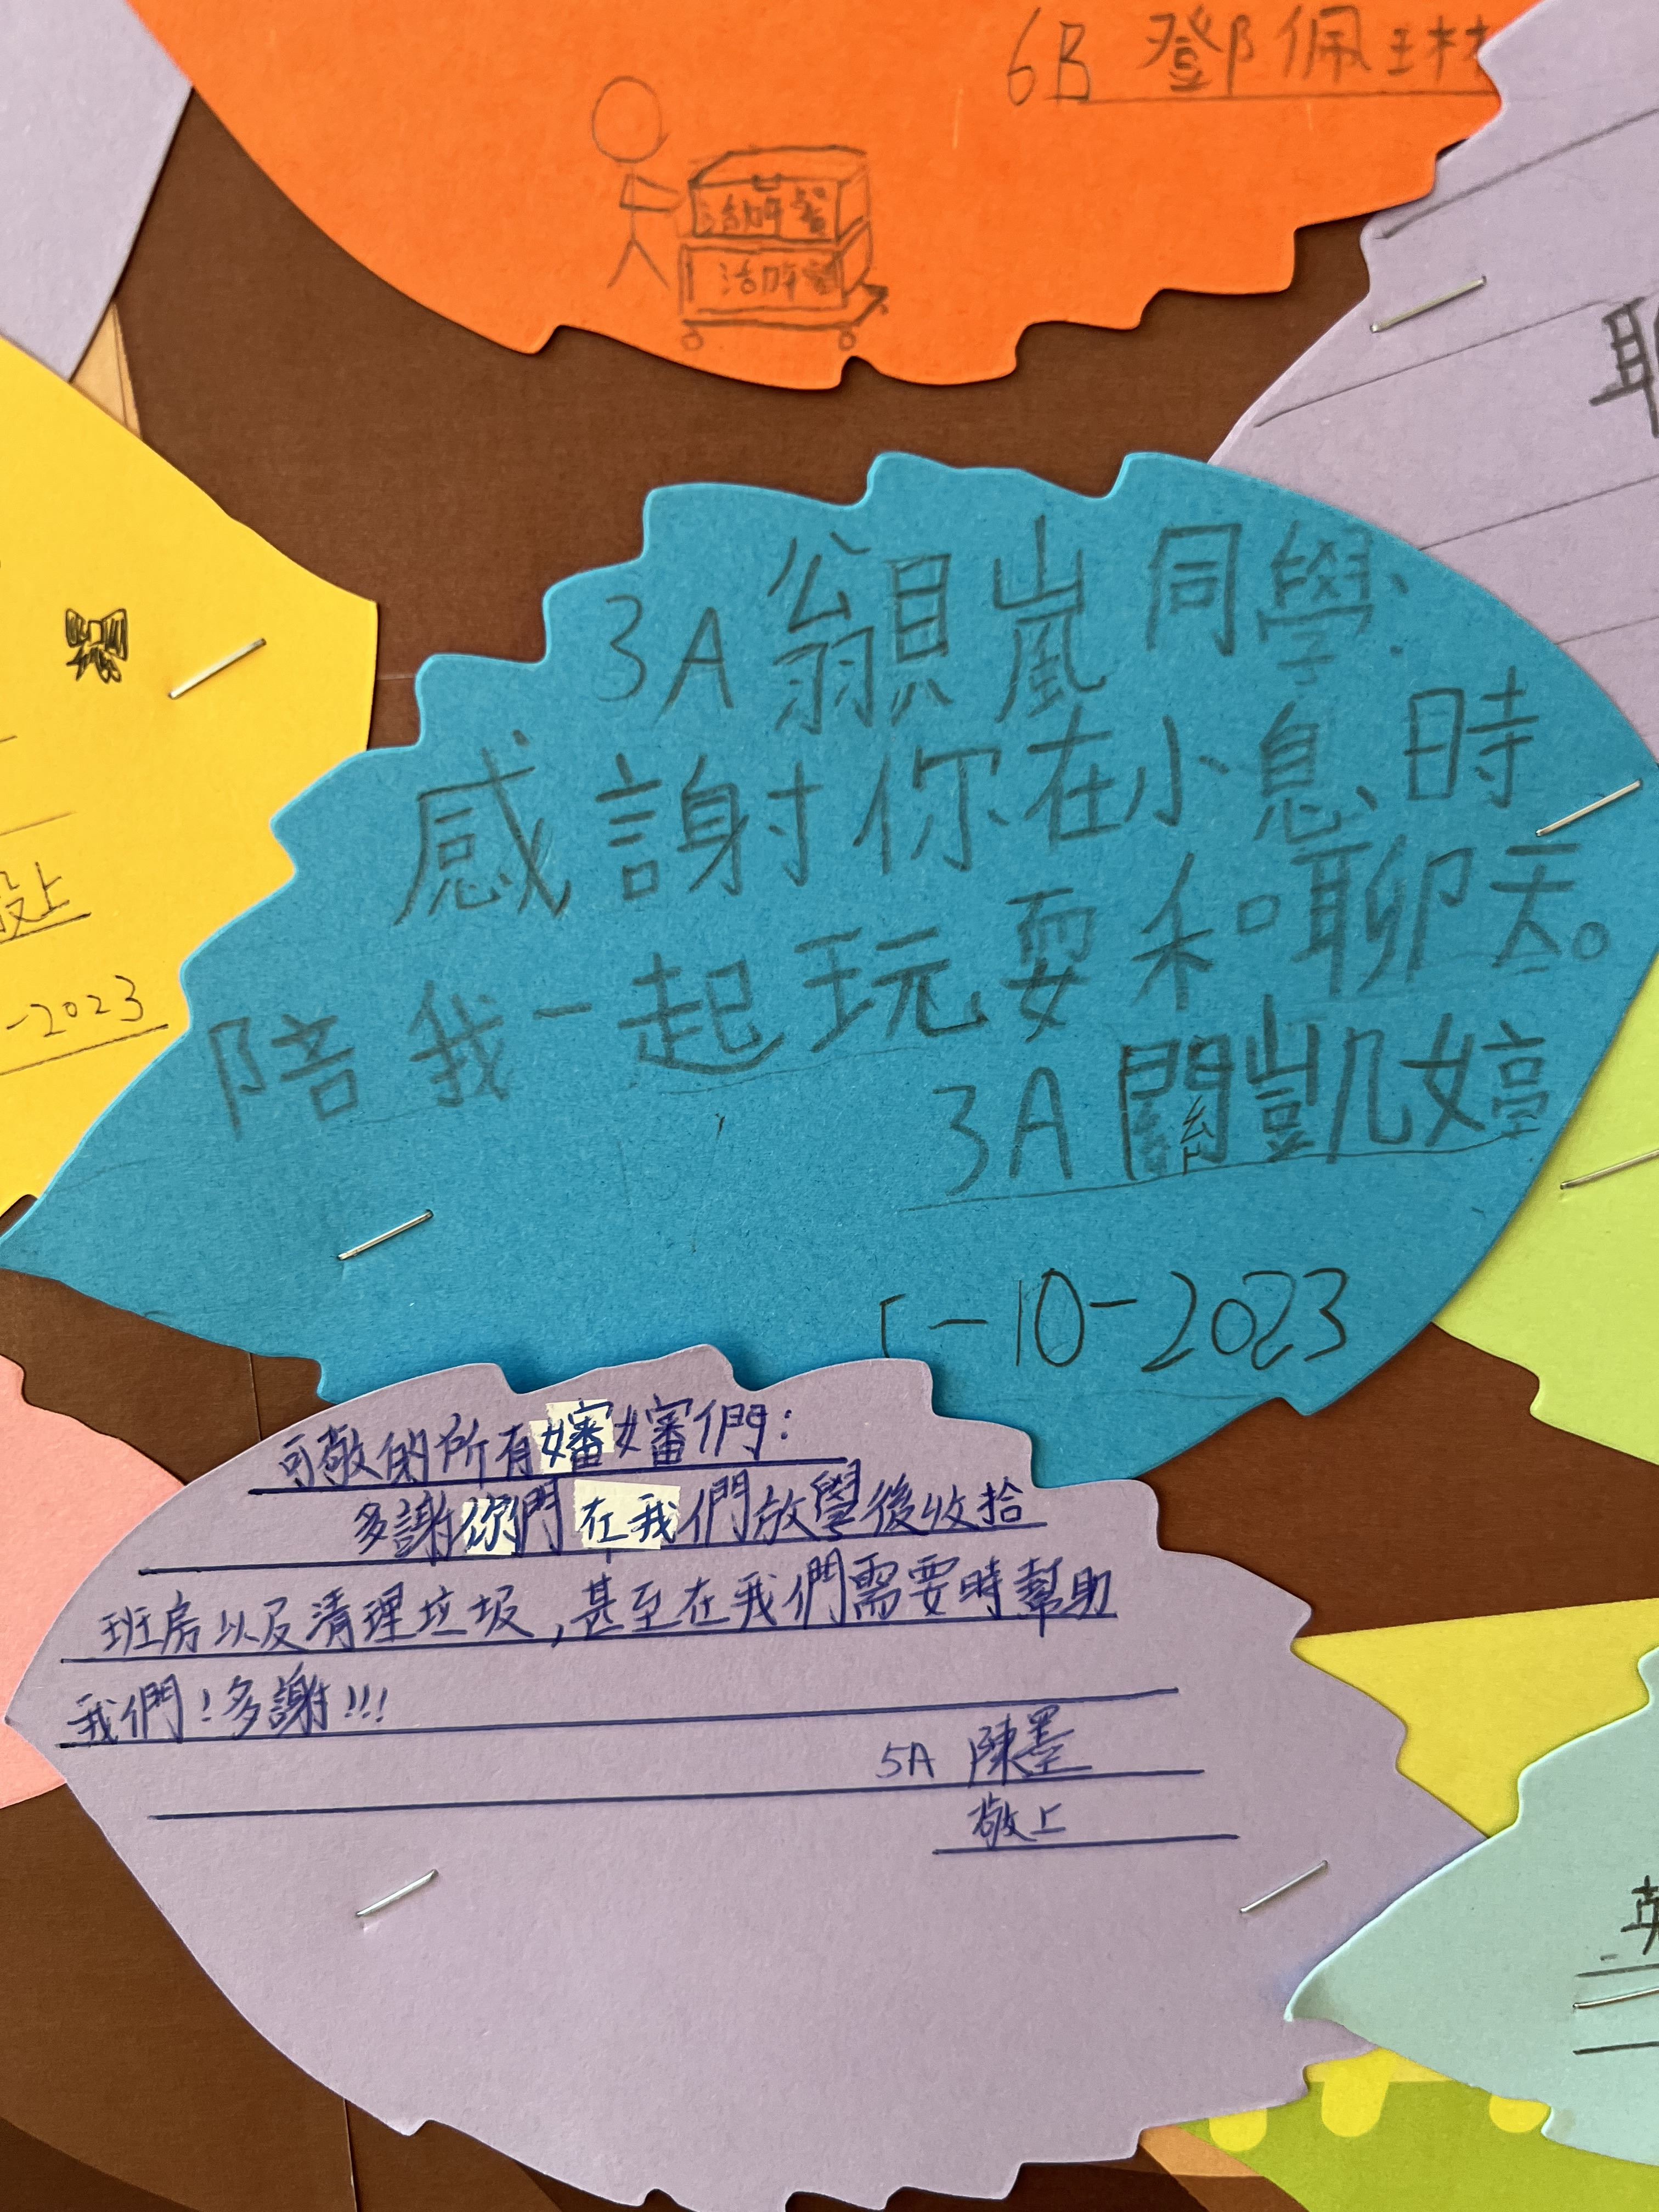 6B 鄧佩琳
活胖醬
活胖醬
3A 翁貝嵐同學:
感謝你在小息時
陪我一起玩耍和聊天。
3A 關凱婷
-10-2023
上
-2023
可敬的所有嬸嬸們:
多謝你們在我們放學後收拾
班房以及清理垃圾,甚至在我們需要時幫助
我們!多謝!!!
5A 陳墨
敬上